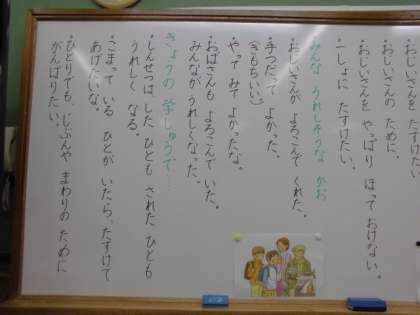 おじいさん
・おじいさんの ために、
・おじいさんを やっぱり ほって おけない。
・一しょに たすけたい。
みんな うれしそうな かお
・おじいさんが よろこんで くれた。
・手つだって よかった。
(きもちいい)
・やって みて よかったな。
・おばさんも よろこんで いた。
みんなが うれしくなった。
きょうの 学しゅうで…
・しんせつは した ひとも された ひとも
うれしく なる。
・こまって いる ひとが いたら、たすけて
あげたいな。
・ひとりでも、じぶんや まわりの ために
がんばりたい。